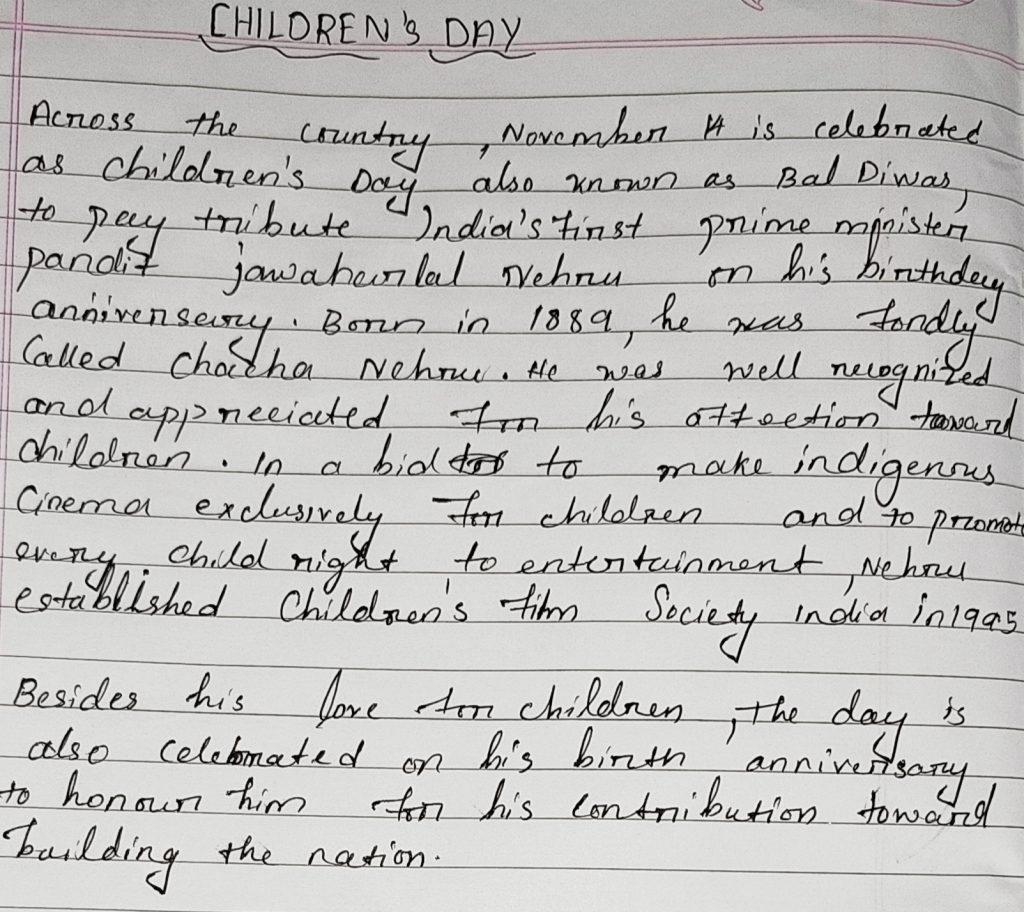 CHILDREN'S DAY
Across the country, November 14 is celebrated
as children's Day also known as Bal Diwas,
to pay tribute India's first prime minister
pandit jawaharlal Nehru on his birthday
anniversary. Born in 1889, he was fondly
Called Chacha Nehru. He was well recognized
and appreciated for his affection toward
children. In a bid to make indigenous
Cinema exclusively for children and to promote
every child right to entertainment, Nehru
established Children's film Society india in 1995
Besides his love for children, the day is
also celebrated on his birth anniversary
to honour him for his contribution toward
building the nation.